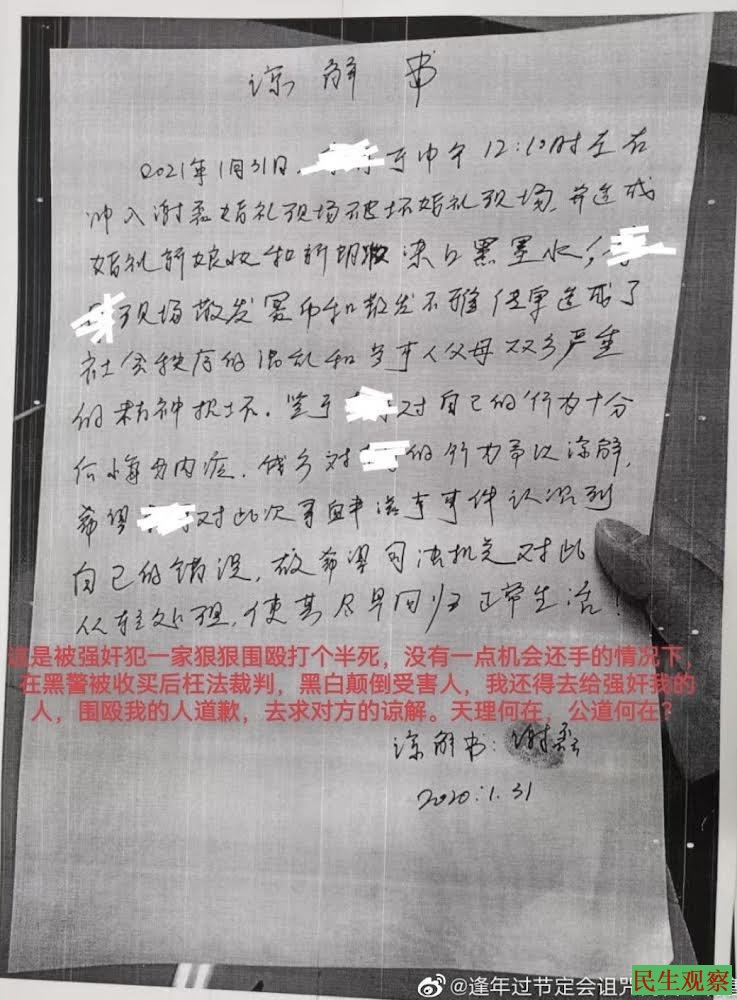 谅解书
2021年1月31日, 于中午12:10时左右
冲入谢磊婚礼现场破坏婚礼现场,并造成
婚礼新娘妆和新郎 染上黑墨水,
现场散发冥币和散发不雅传单造成了
社会秩序的混乱和当事人父母双方严重
的精神损坏。鉴于 对自己的行为十分
后悔与内疚。我方对 的行为予以谅解,
希望 对此次寻衅滋事事件认识到
自己的错误,故希望司法机关对此
从轻处理,使其尽早回归正常生活!
这是被强奸犯一家狠狠围殴打个半死,没有一点机会还手的情况下,
在黑警被收买后枉法裁判,黑白颠倒受害人,我还得去给强奸我的
人,围殴我的人道歉,去求对方的谅解。天理何在,公道何在?
谅解书:谢磊
2020.1.31
@逢年过节定会诅咒
民生观察